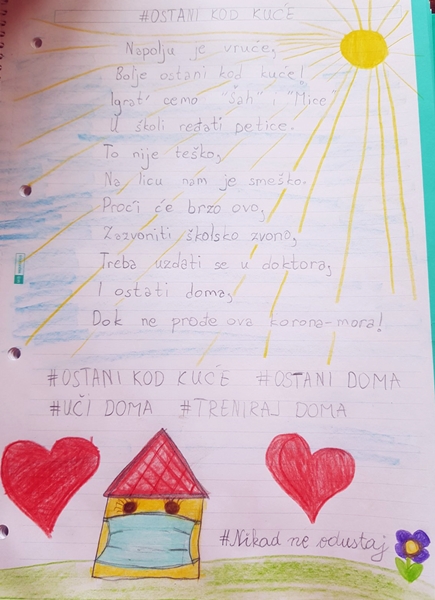 #OSTANI KOD KUĆE
Napolju je vruće,
Bolje ostani kod kuće!
Igrat' ćemo "Šah" i "Mice"
U školi ređati petice.
To nije teško,
Na licu nam je smeško.
Proći će brzo ovo,
Zazvoniti školsko zvono,
Treba uzdati se u doktora,
I ostati doma,
Dok ne prođe ova korona-mora!
#OSTANI KOD KUĆE #OSTANI DOMA
#UČI DOMA #TRENIRAJ DOMA
#Nikad ne odustaj